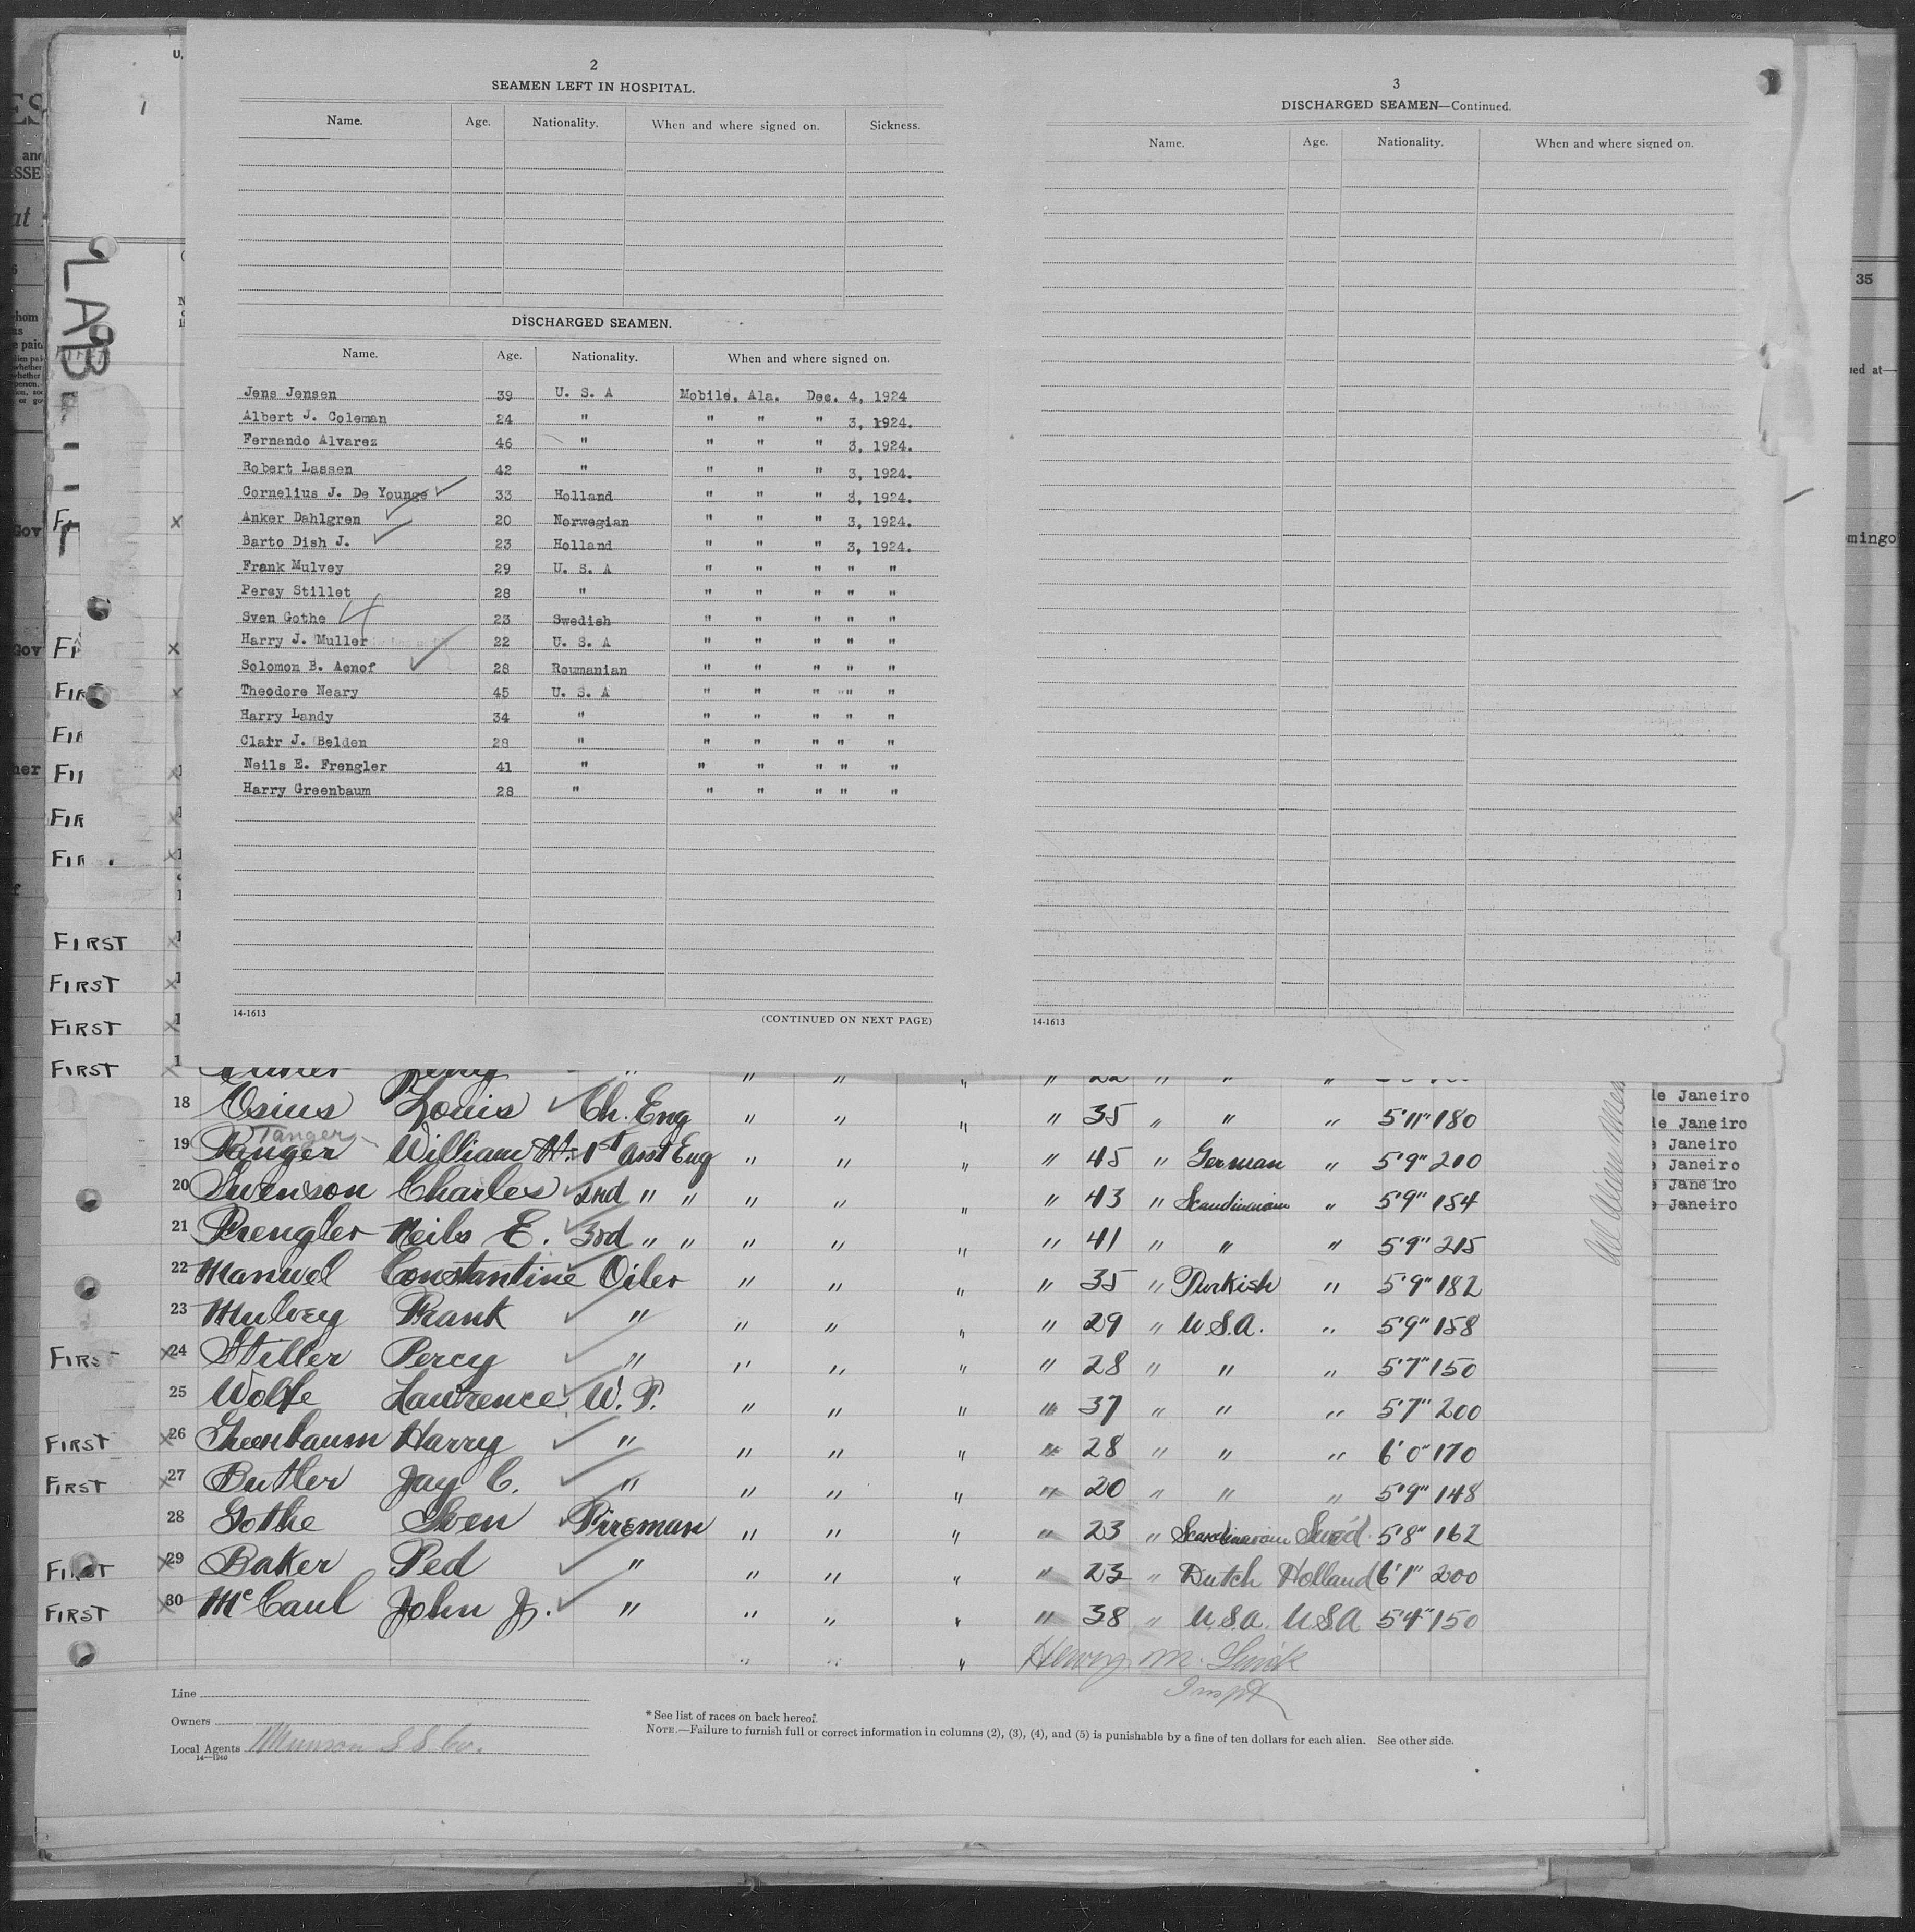 2
SEAMEN LEFT IN HOSPITAL.
Name. Age. Nationality. When and where signed on. Sickness.
DISCHARGED SEAMEN.
Name. Age. Nationality. When and where signed on.
Jens Jensen 39 U. S. A Mobile, Ala. Dec. 4, 1924
Albert J. Coleman 24 " " " " 3, 1924.
Fernando Alvarez 46 " " " " 3, 1924.
Robert Lassen 42 " " " " 3, 1924.
Cornelius J. De Younge 33 Holland " " " 3, 1924.
Anker Dahlgren 20 Norwegian " " " 3, 1924.
Barto Dish J. 23 Holland " " " 3, 1924.
Frank Mulvey 29 U. S. A " " " " "
Percy Stillet 28 " " " " " "
Sven Gothe 23 Swedish " " " " "
Harry J. Muller 22 U. S. A " " " " "
Solomon B. Acnof 28 Roumanian " " " " "
Theodore Neary 45 U. S. A " " " " "
Harry Landy 34 " " " " " "
Clair J. Belden 28 " " " " " "
Neils E. Frengler 41 " " " " " "
Harry Greenbaum 28 " " " " " "
14-1613 (CONTINUED ON NEXT PAGE)
3
DISCHARGED SEAMEN—Continued.
Name. Age. Nationality. When and where signed on.
14-1613
35
mingo
FIRST
FIRST
FIRST
FIRST
18 Osius Louis Ch. Eng " " " " 35 " " " 5'11" 180
Tanger
19 Tanger William H. 1st Asst Eng " " " " 45 " German " 5'9" 210
20 Swenson Charles 2nd " " " " " " 43 " Scandinavian " 5'9" 184
21 Frengler Neils E. 3rd " " " " " " 41 " " " 5'9" 215
22 Manuel Constantine Oiler " " " " 35 " Turkish " 5'9" 182
23 Mulvey Frank " " " " " 29 " U.S.A. " 5'9" 158
FIRST 24 Stiller Percy " " " " " 28 " " " 5'7" 150
25 Wolfe Lawrence W. T. " " " " 37 " " " 5'7" 200
FIRST 26 Greenbaum Harry " " " " " 28 " " " 6'0" 170
FIRST 27 Butler Jay C. " " " " " 20 " " " 5'9" 148
28 Gothe Sven Fireman " " " " 23 " Scandinavian Swed. 5'8" 162
FIRST 29 Baker Ted " " " " " 23 " Dutch Holland 6'1" 200
FIRST 30 McCaul John J. " " " " " 38 " U.S.A. U.S.A 5'4" 150
" " "
Inspt
de Janeiro
de Janeiro
Janeiro
Janeiro
Janeiro
Janeiro
Line
Owners
Local Agents Munson S S Co.
14—1240
* See list of races on back hereof.
NOTE.—Failure to furnish full or correct information in columns (2), (3), (4), and (5) is punishable by a fine of ten dollars for each alien. See other side.